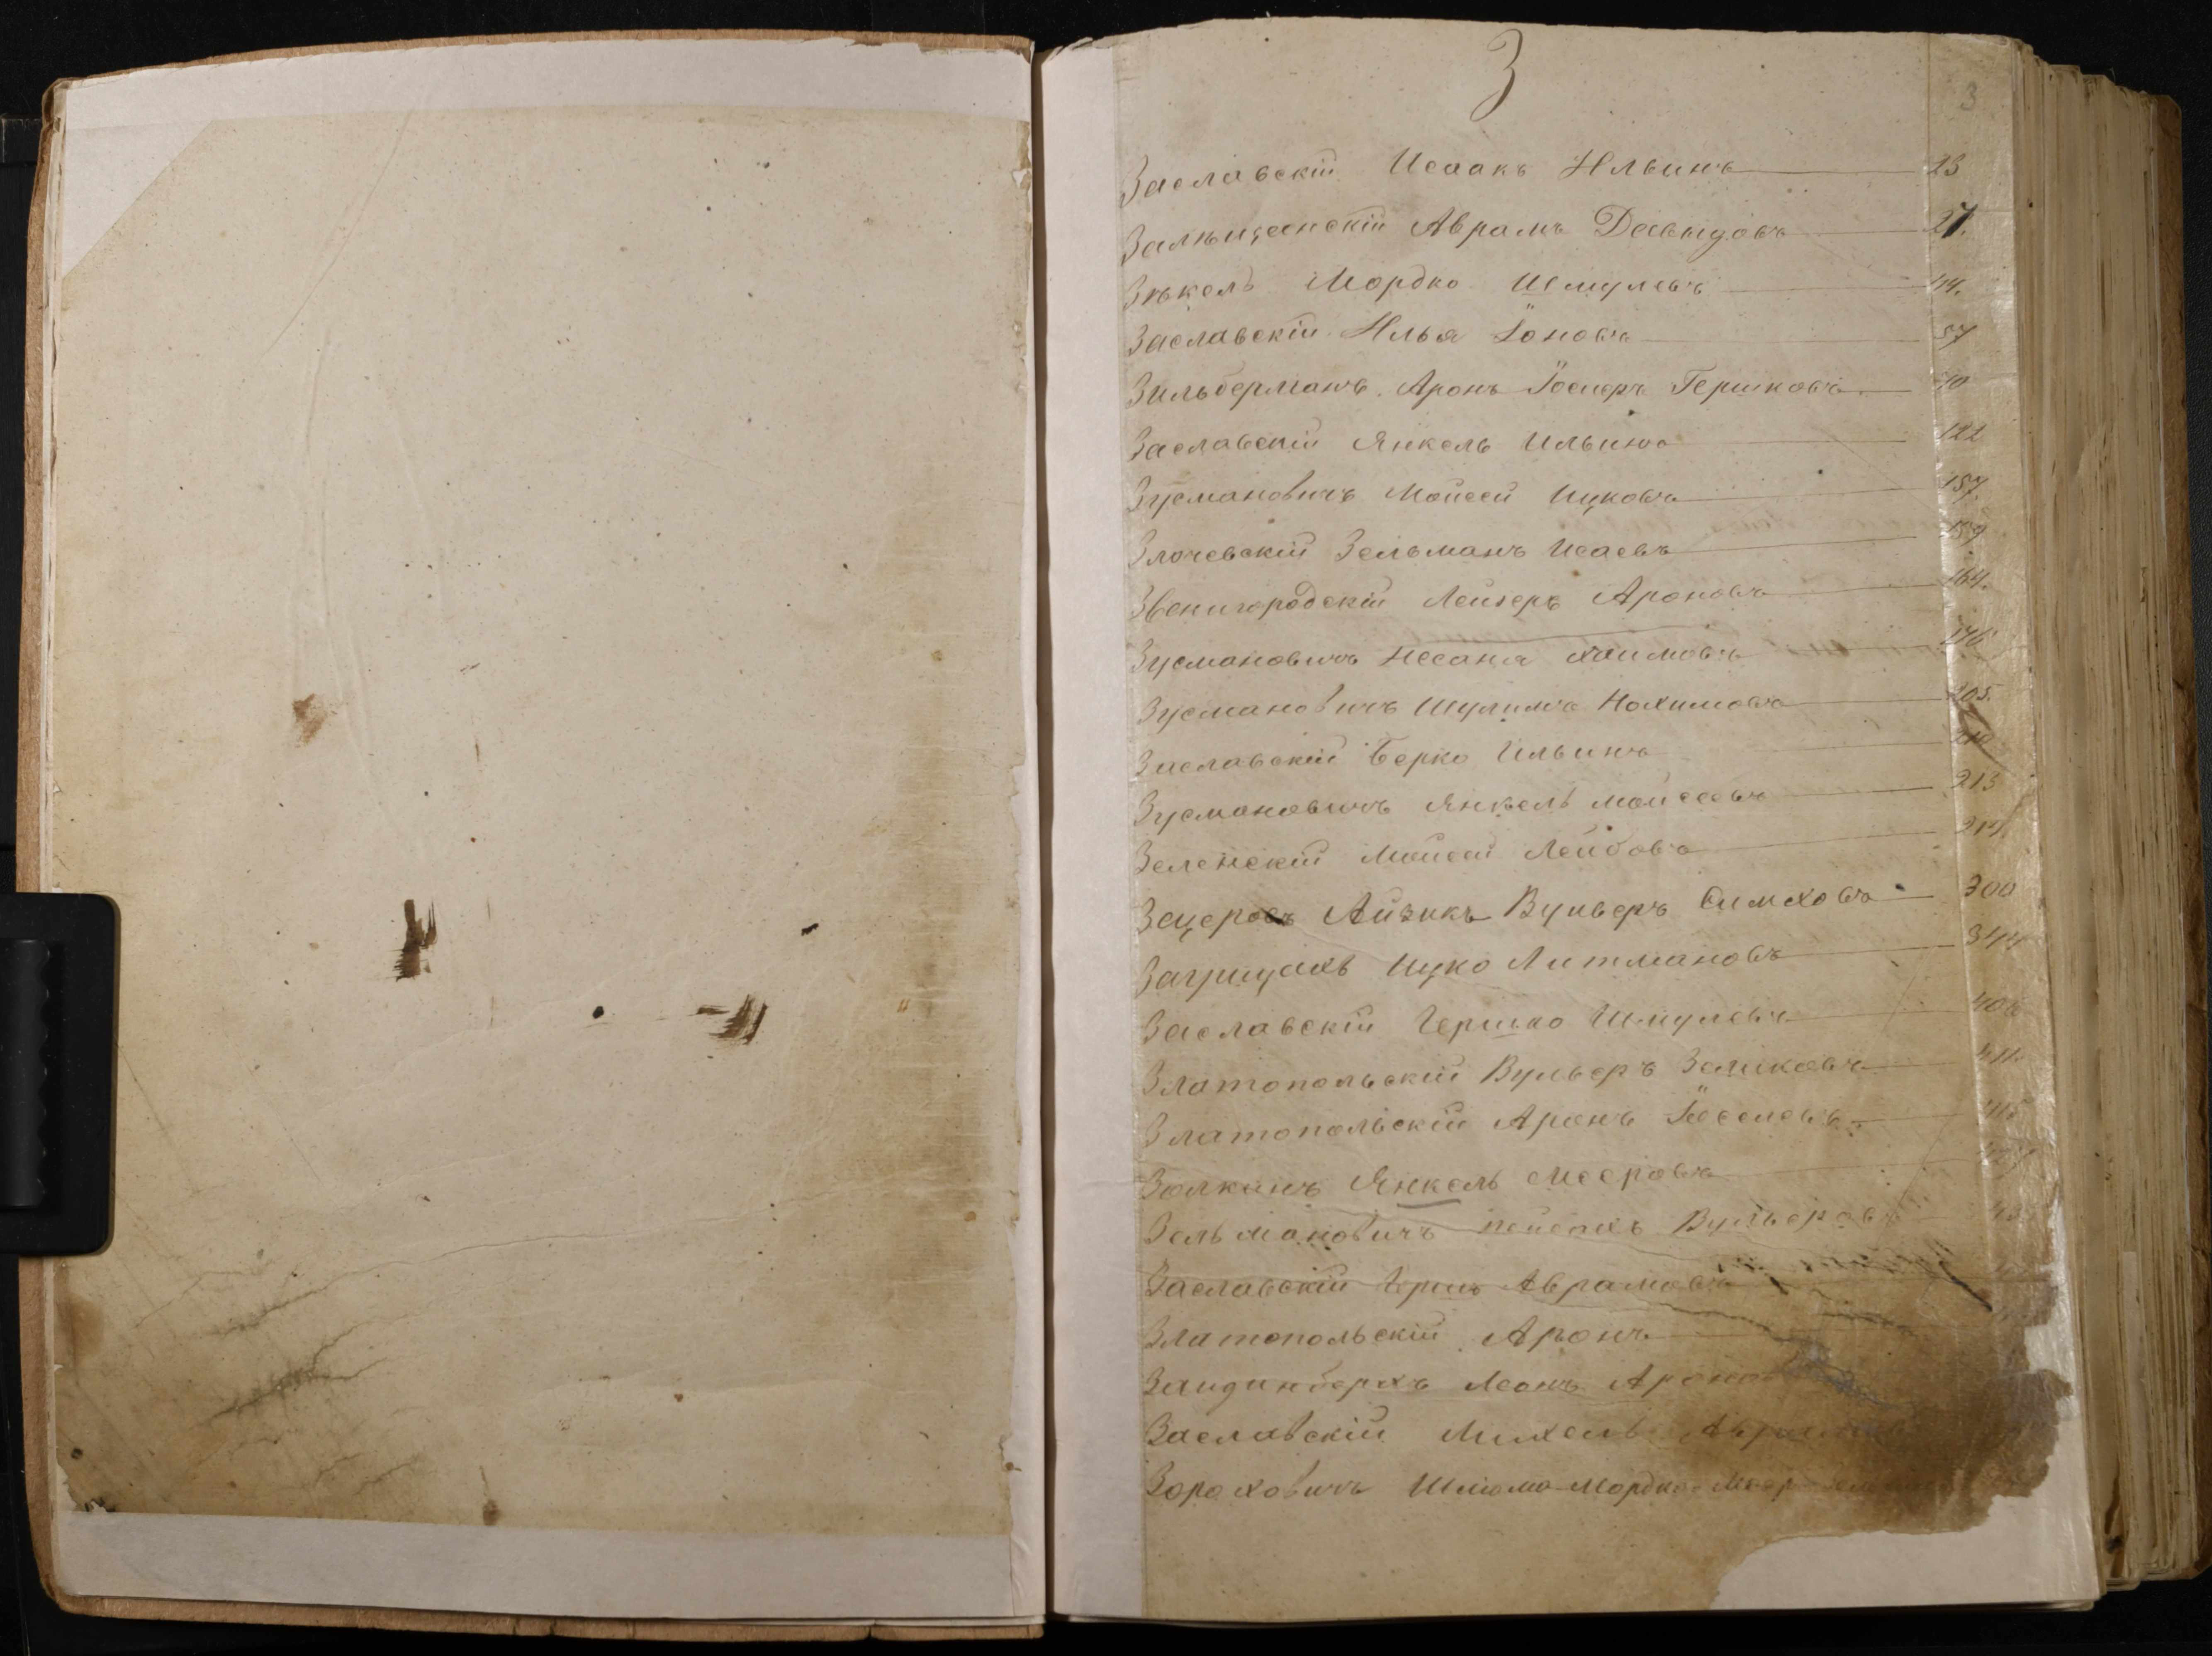 З
3
Заславскій Исаакъ Ильинъ 23
Аврамъ Давыдовъ 27.
Зѣкель Мордко Шмулевъ 44.
Заславскій Илья Іоновъ 57
Зильберманъ Аронъ Іосифъ Гершковъ 70
Заславскій Янкель Ильинъ 122
Зусмановичъ Мойсей Ицковъ 157.
Злочевскій Зельманъ Исаевъ 159
Звенигородскій Лейзеръ Ароновъ 164.
Зусмановичъ Несанія Хаимовъ 176
Зусмановичъ Шулимъ Нохимовъ 205.
Заславскій Берко Ильинъ 210
Зусмановичъ Янкель Мойсеевъ 213
Зеленскій Мойсей Лейбовъ
Зецеровъ Айзикъ Вульфъ Симховъ 300
Ицко Литмановъ 344
Заславскій Гершко Шмулевъ 406
Златопольскій Вульфъ Зеликовъ 411.
Златопольскій Аронъ Іоселевъ 415
Золкинъ Янкель Мееровъ
Зельмановичъ Пейсахъ Вульфовъ
Заславскій Гершъ Аврамовъ
Златопольскій Аронъ
Леонъ
Заславскій Михель
Зороховичъ Шлюмо-Мордко-Меер